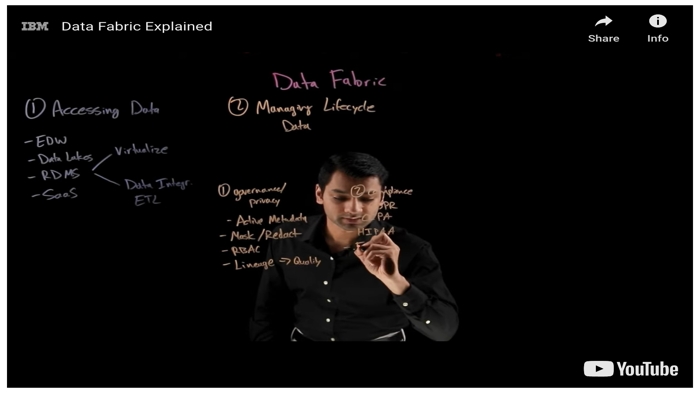 IBM Data Fabric Explained
Share
Info
Data Fabric
① Accessing Data
- EDW
- Data Lakes
- RDMS
- SaaS
Virtualize
Data Integr.
ETL
② Managing Lifecycle
Data
① governance/
privacy
- Active Metadata
- Mask/Redact
- RBAC
- Lineage => Quality
②
HIPAA
YouTube